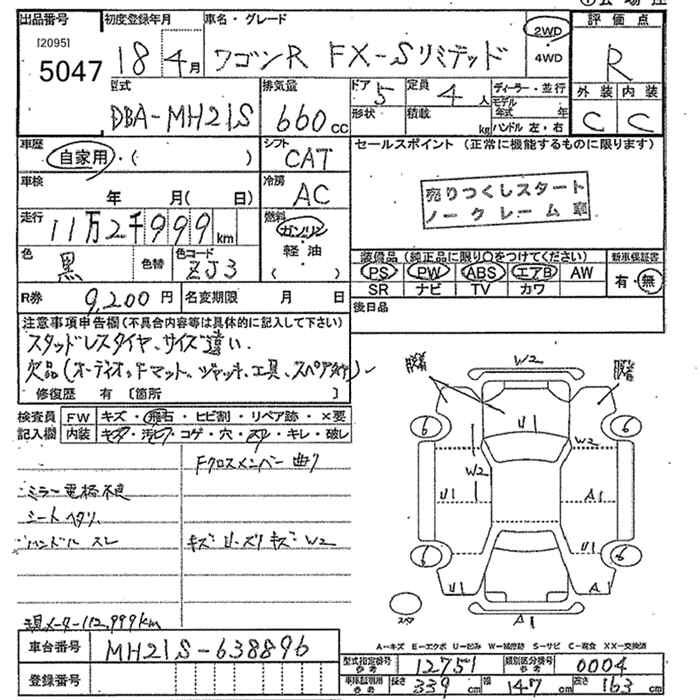 ①会場注
出品番号
[2095]
5047
初度登録年月
18年4月
車名・グレード
ワゴンR FX-Sリミテッド
2WD
4WD
評価点
R
外装 内装
C C
型式
DBA-MH21S
排気量
660cc
ドア 5
形状
定員 4人
積載 kg
ディーラー・並行
モデル年式 年
ハンドル 左・右
車歴
自家用・( )
シフト
CAT
車検
年 月( 日)
冷房
AC
走行
11万2千999km
燃料
ガソリン
軽油
( )
色
黒
色替
色コード
ZJ3
R券 9,200円
名変期限 月 日
セールスポイント (正常に機能するものに限ります)
売りつくしスタート
ノークレーム車
装備品 (純正品に限り○をつけてください)
PS PW ABS エアB AW
SR ナビ TV カワ
新車保証書
有・無
後日品
注意事項申告欄(不具合内容等は具体的に記入して下さい)
スタッドレスタイヤ、サイズ違い、
欠品(オーディオ、Fマット、ジャッキ、工具、スペアタイヤ)
修復歴 有 〔箇所
検査員
記入欄
FW キズ・飛石・ヒビ割・リペア跡・×要
内装 キズ・汚レ・コゲ・穴・スレ・キレ・破レ
Fクロスメンバー曲り
ミラー電格不良
シートヘタリ、
ハンドルスレ
キズ U・ズリキズ W2
現メーター112,999km
W2
U1
6 6
W2
W2
U1
A1
6 6
U1
A1
A1
スタ
A-キズ E-エクボ U-凹み W-補修跡 S-サビ C-腐食 XX-交換済
車台番号
MH21S-638896
登録番号
型式指定番号
参考
12751
類別区分番号
参考
0004
車検証明用
参考
長さ 339cm
幅 147cm
高さ 163cm